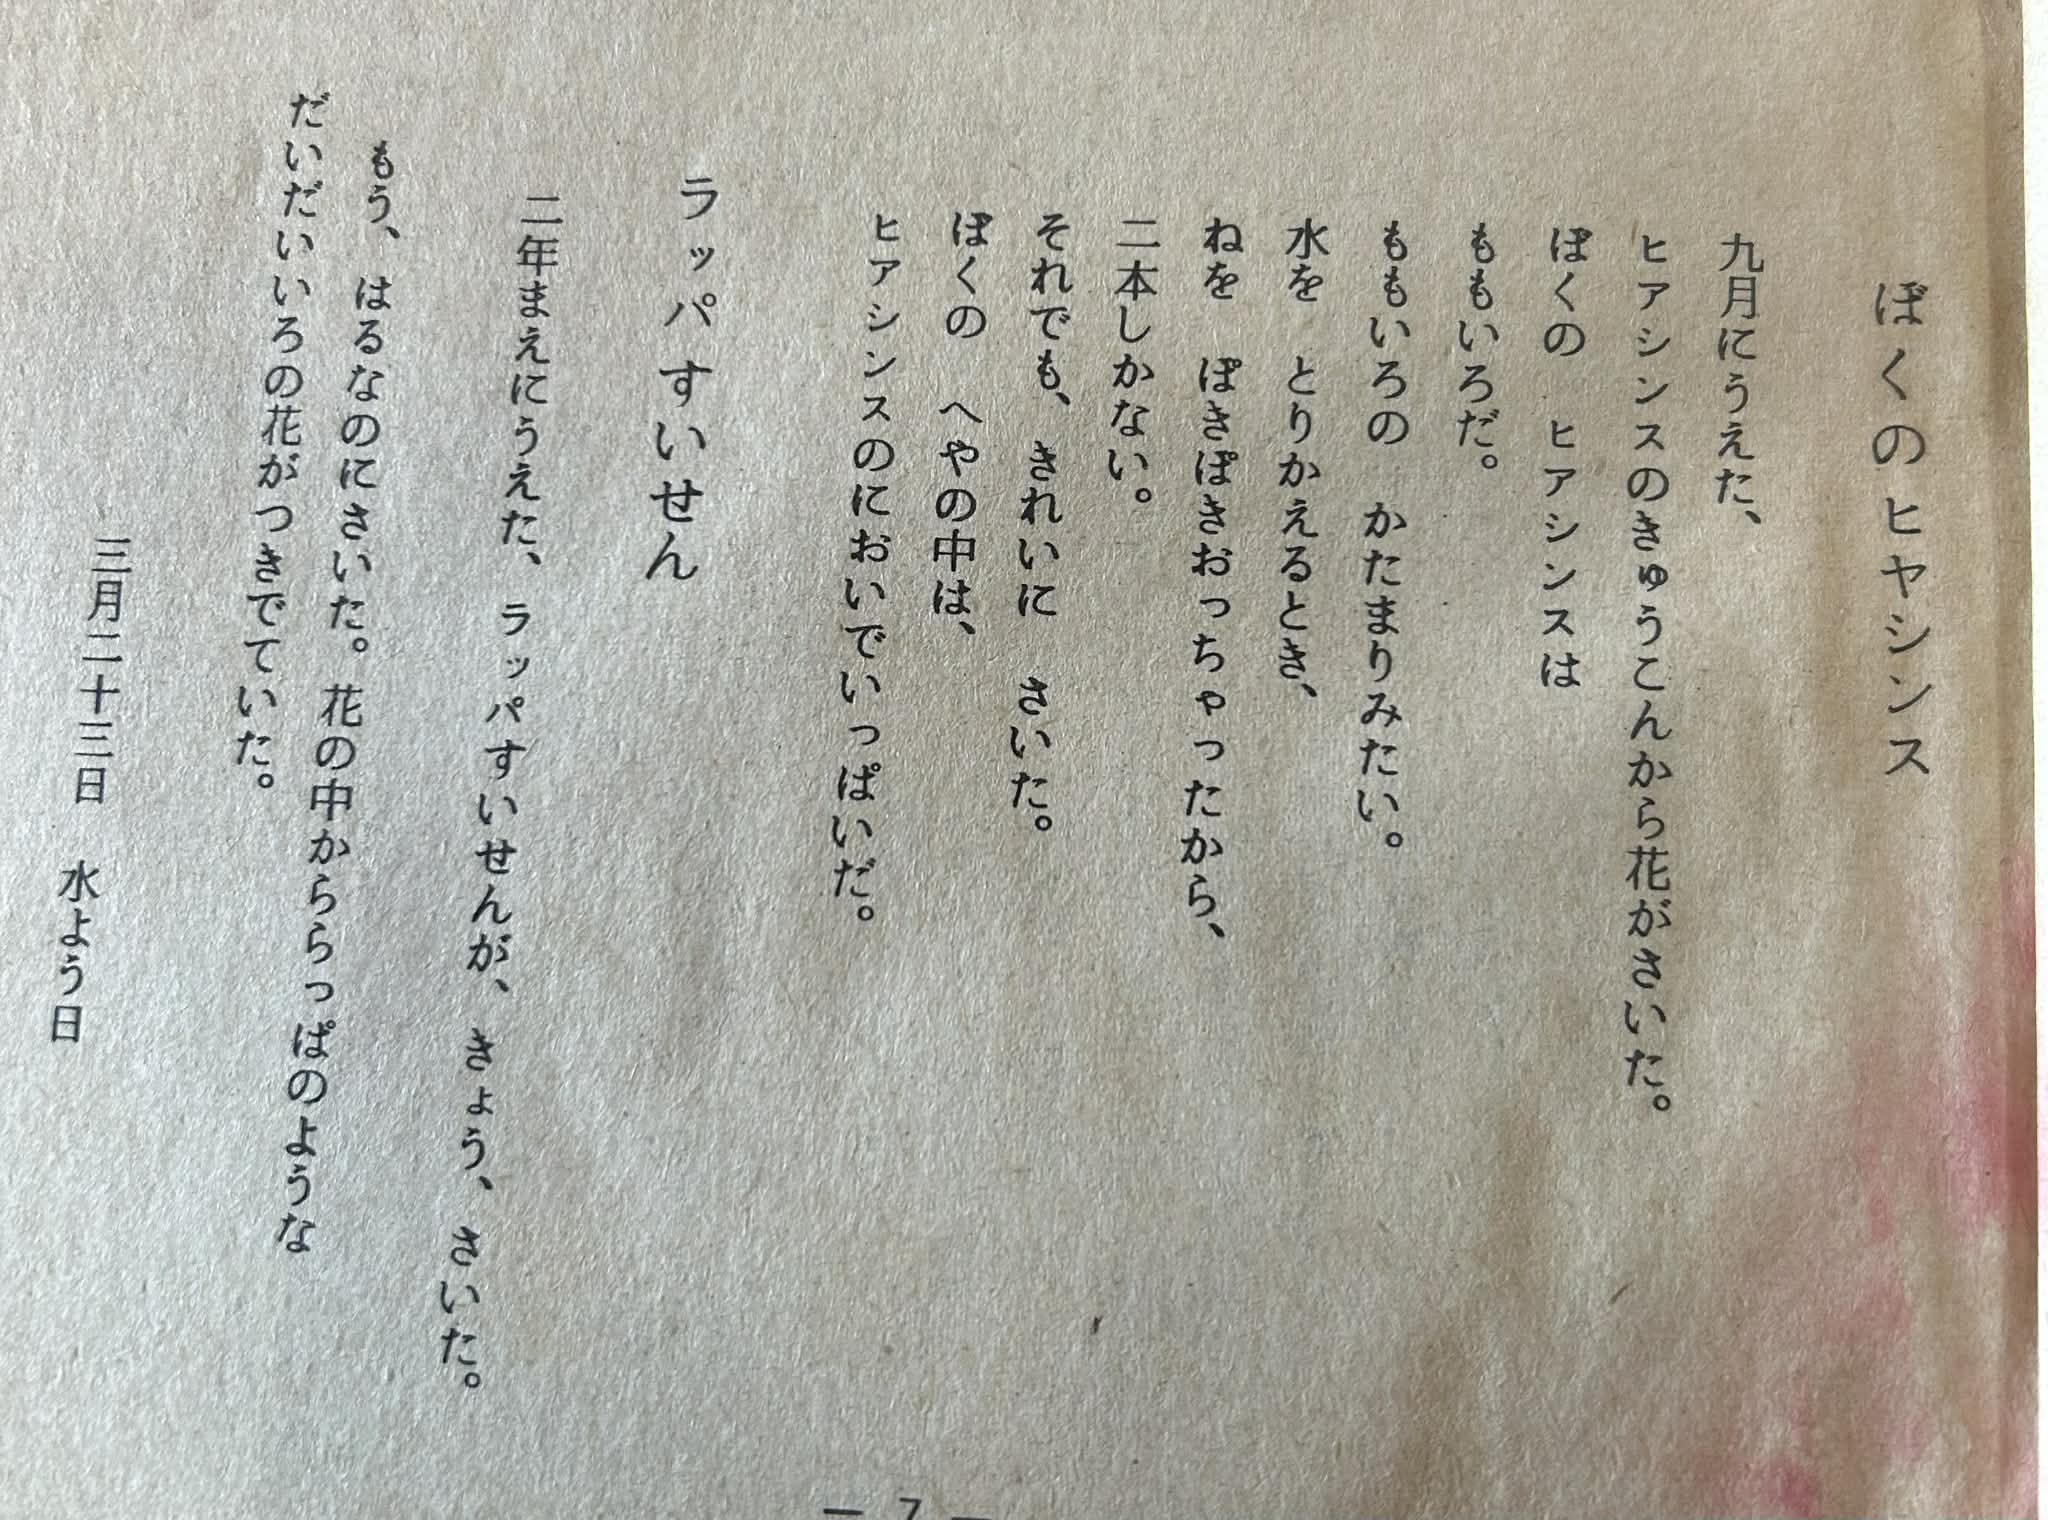 ぼくのヒヤシンス
九月にうえた、
ヒアシンスのきゅうこんから花がさいた。
ぼくの　ヒアシンスは
ももいろだ。
ももいろの　かたまりみたい。
水を　とりかえるとき、
ねを　ぽきぽきおっちゃったから、
二本しかない。
それでも、きれいに　さいた。
ぼくの　へやの中は、
ヒアシンスのにおいでいっぱいだ。
ラッパすいせん
二年まえにうえた、ラッパすいせんが、きょう、さいた。
もう、はるなのにさいた。花の中かららっぱのような
だいだいいろの花がつきでていた。
三月二十三日　水よう日
— 7 —